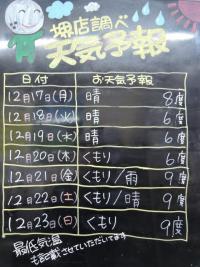 堺店調べ
天気予報
日付 お天気予報
12月17日(月) 晴 8度
12月18日(火) 晴 6度
12月19日(水) 晴 6度
12月20日(木) くもり 6度
12月21日(金) くもり/雨 9度
12月22日(土) くもり/晴 9度
12月23日(日) くもり 9度
最低気温
も記載させていただいてます